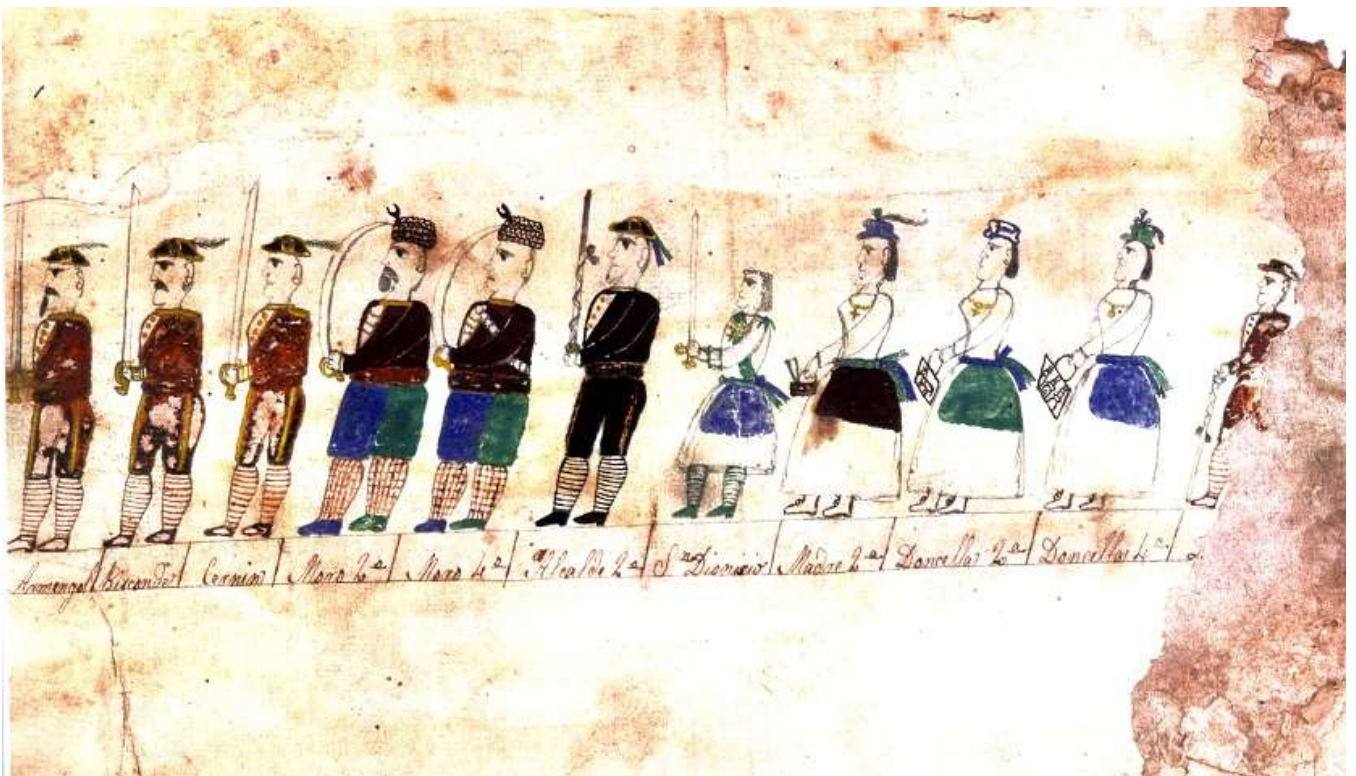 Armengol Bisconde Cernin Moro 2ª Moro 4ª Alcalde 2ª Sn Dionisio Madre 2ª Doncellas 2ª Doncellas 4ª